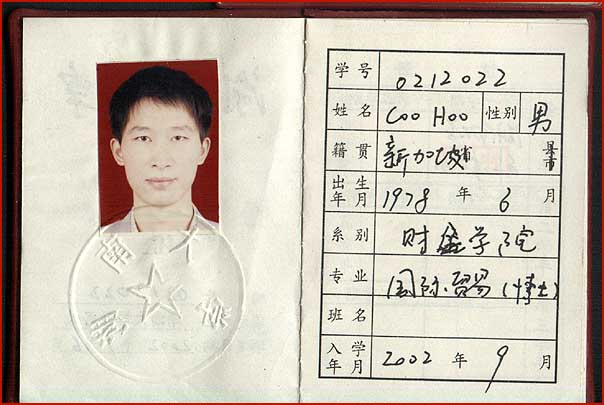 学号 0212022
姓名 Coo Hoo 性别 男
籍贯 新加坡 省 县市
出生年月 1978 年 6 月
系别 财金学院
专业 国际贸易(博士)
班名
入学年月 2002 年 9 月